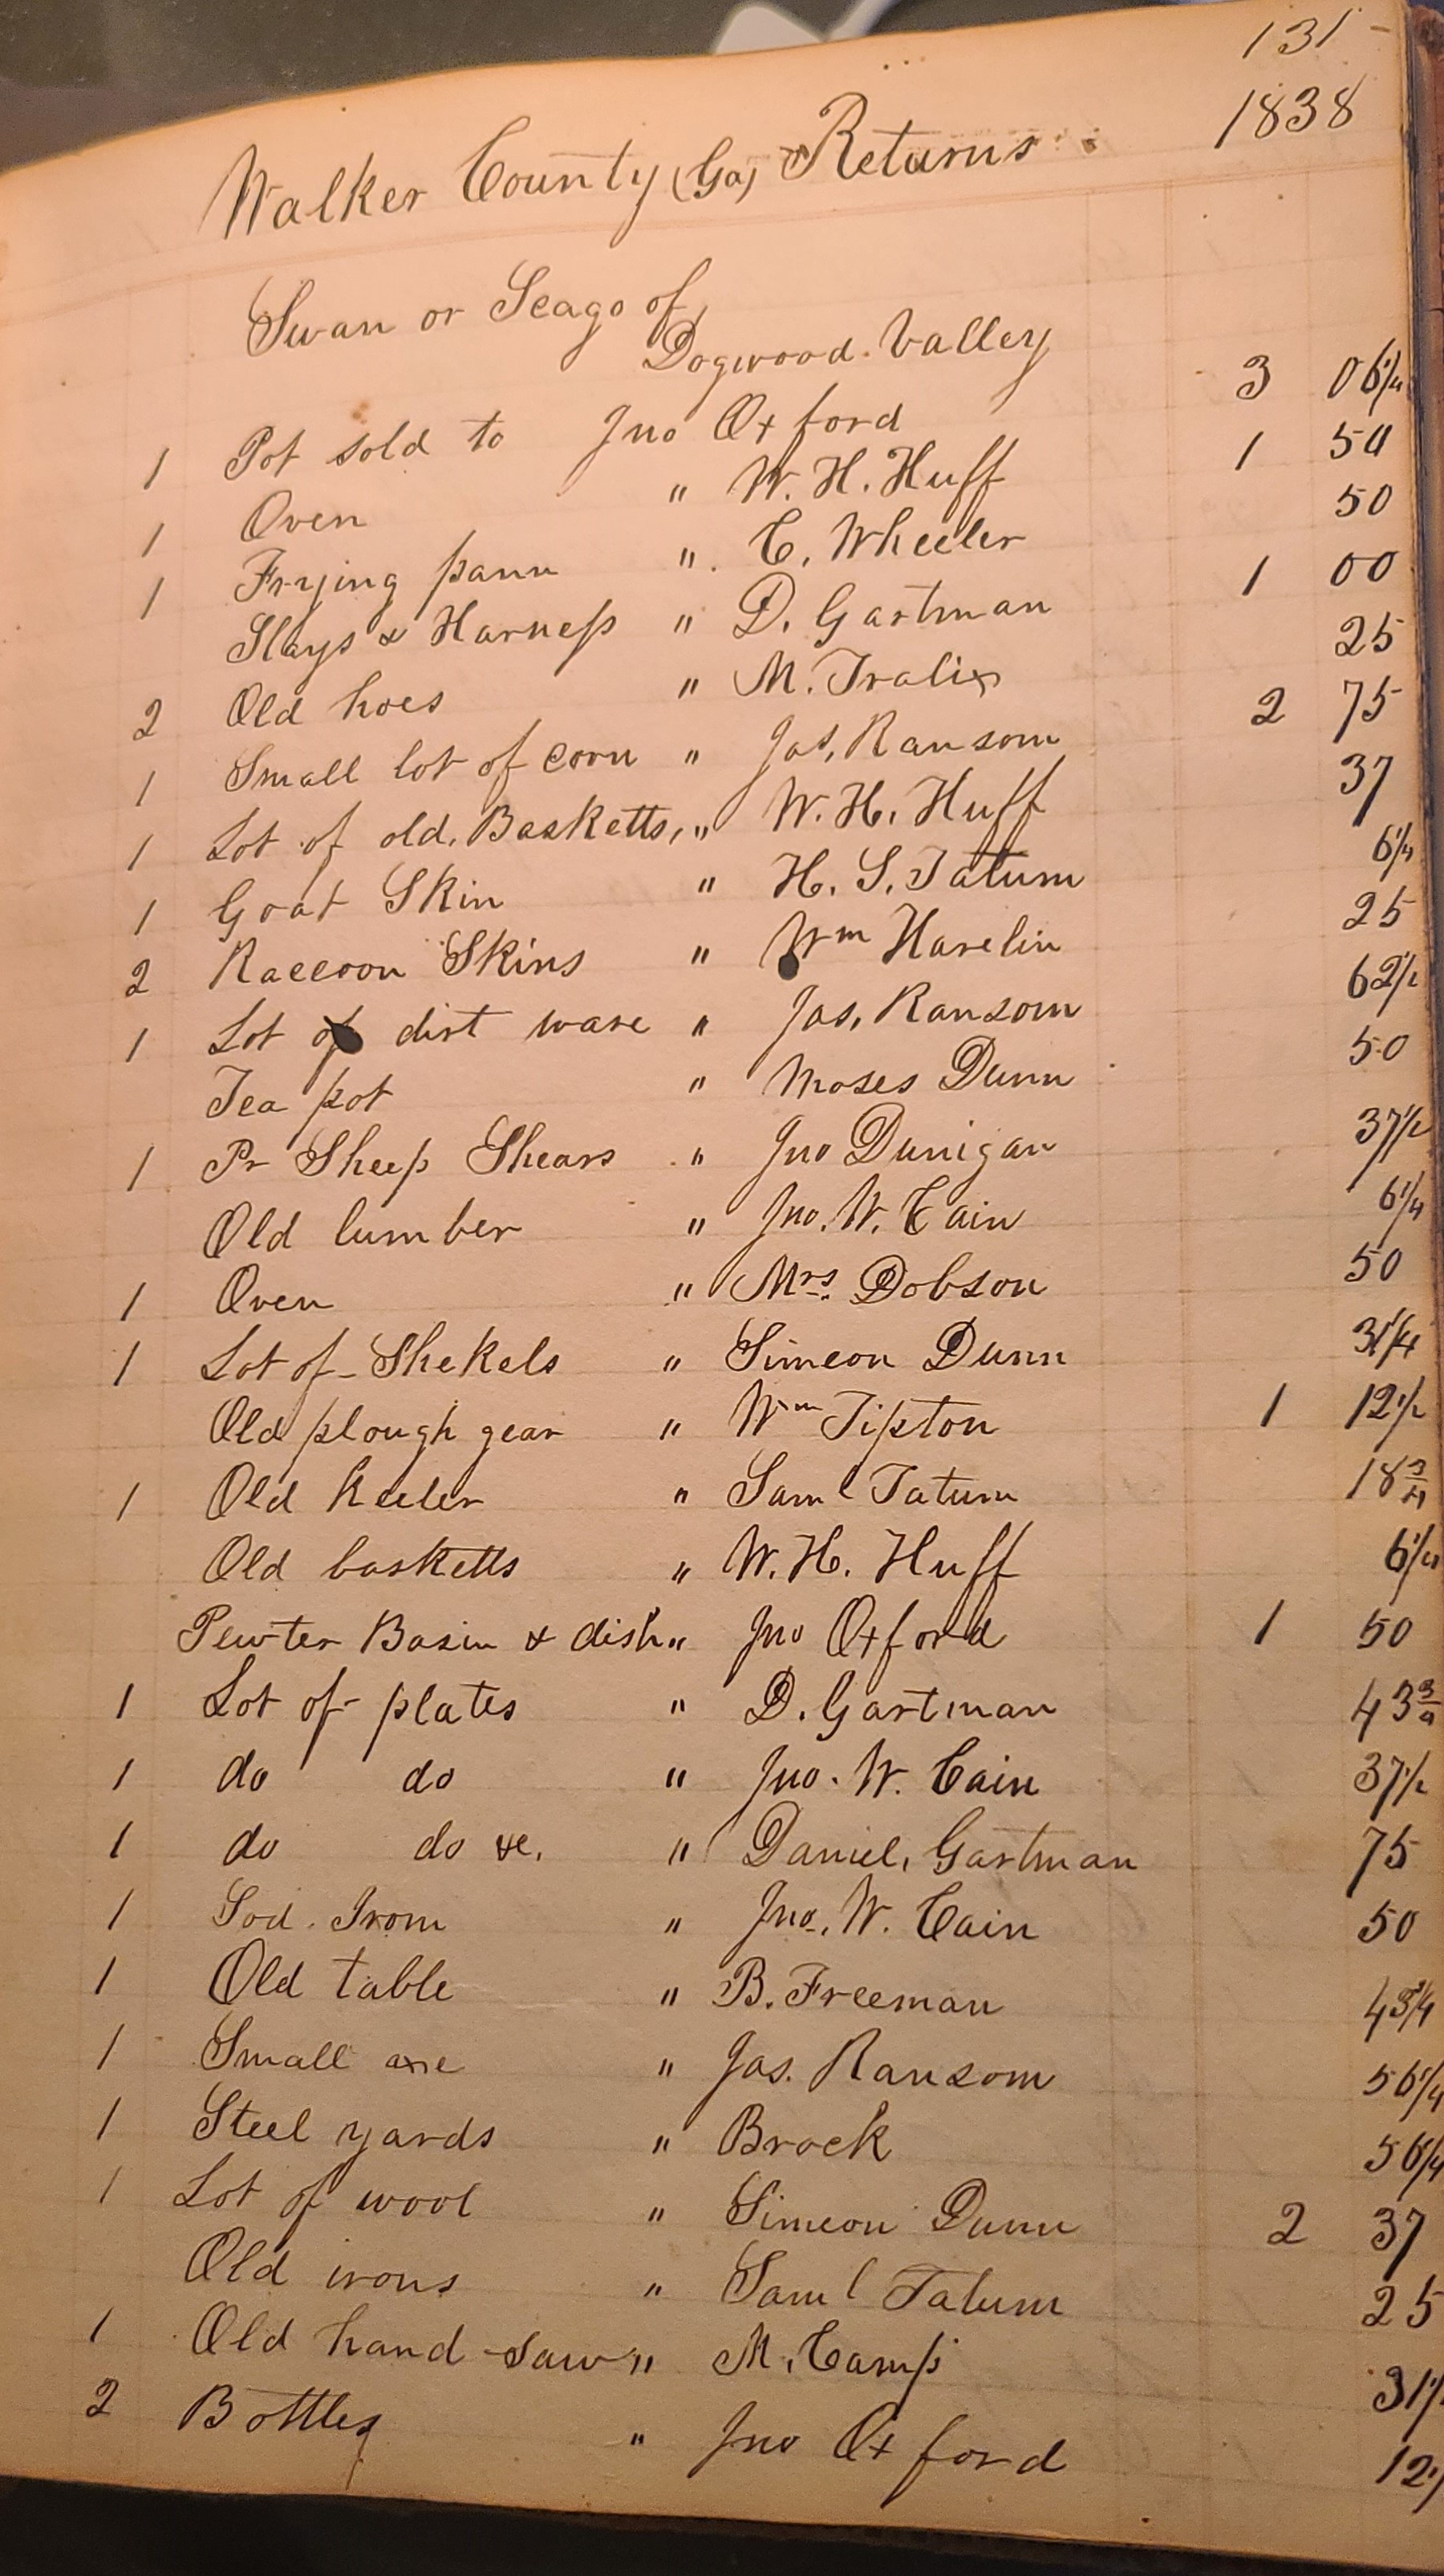 131-
1838
Walker County (Ga) Returns.
Swan or Seago of
Dogwood Valley
1 Pot sold to Jno Oxford 3 06 1/4
1 Oven " W. H. Huff 1 50
1 Frying pann " C. Wheeler 50
Slays & Harness " D. Gartman 1 00
2 Old hoes " M. 25
1 Small lot of corn " Jas. Ransom 2 75
1 Lot of old Basketts, " W. H. Huff 37
1 Goat Skin " H. S. Tatum 6 1/4
2 Raccoon Skins " Wm Havelin 25
1 Lot of dirt ware " Jas. Ransom 62 1/2
Tea pot " Moses Dunn 50
1 Pr Sheep Shears " Jno Dunigan 37 1/2
Old lumber " Jno. W. Cain 6 1/4
1 Oven " Mrs. Dobson 50
1 Lot of Shekels " Simeon Dunn 31 1/4
Old plough gear " Wm Tipton 1 12 1/2
1 Old Keeler " Saml Tatum 18 3/4
Old basketts " W. H. Huff 6 1/4
Pewter Basin & dish " Jno Oxford 1 50
1 Lot of plates " D. Gartman 43 3/4
1 do do " Jno. W. Cain 37 1/2
1 do do &c. " Daniel. Gartman 75
1 Sod. Irom " Jno. W. Cain 50
1 Old table " B. Freeman 43 3/4
1 Small axe " Jas. Ransom 56 1/4
1 Steel yards " Brock 56 1/4
1 Lot of wool " Simeon Dunn 2 37
Old irons " Saml Tatum 25
1 Old hand saw " M. Camp 31
2 Bottles " Jno Oxford 12